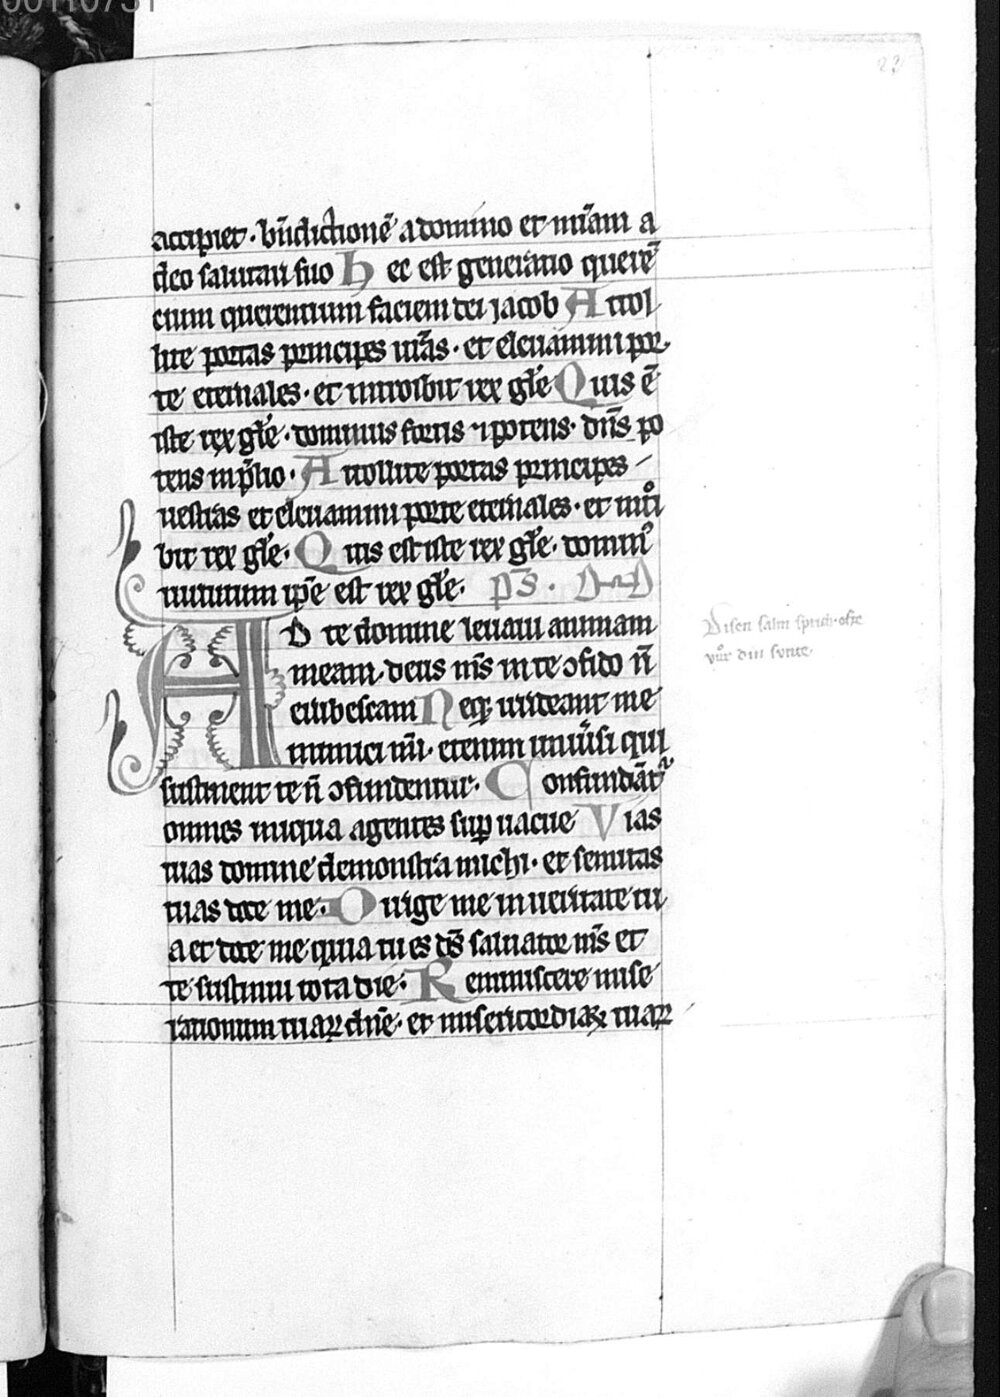 00110731
23
accipiet. bn̄dictionē a domino et mīam a
deo salutari suo Hec est generatio querē
cium querentium faciem dei jacob Attol
lite portas principes ur̄as. et eleuamini por
te eternales. et introibit rex gl̄e Quis ē
iste rex gl̄e. dominus fortis ⁊ potens. dn̄s po
tens in p̄lio. Attollite portas principes
uestras et eleuamini porte eternales. et intͦi
bit rex gl̄e. Quis est iste rex gl̄e. dominꝰ
uirtutum ip̄e est rex gl̄e. p̄s. D-a-D
AD te domine leuaui animam
meam. deus m̄s in te ꝯfido n̄
erubescam Neqꝫ irrideant me
inimici mi̅. etenim uniūsi qui
sustinent te n̄ ꝯfundentur. Confundāt᷑
omnes iniqua agentes sup̱ uacue Vias
tuas domine demonstra michi. et semitas
tuas doce me. Dirige me in ueritate tu
a et doce me quia tu es d̄s saluator m̄s et
te sustinui tota die. Reminiscere mise
rationum tuaꝝ dn̄e. et misericordiaꝝ tuaꝝ
Disen salm sprich
vͦr din sunte.